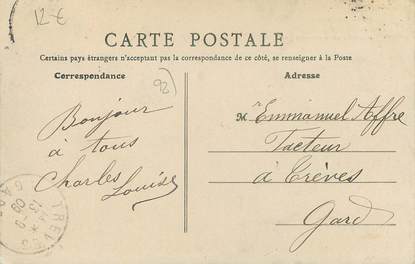 12€
CARTE POSTALE
Certains pays étrangers n'acceptant pas la correspondance de ce côté, se renseigner à la Poste
Correspondance
Adresse
92
Bonjour
à tous
Charles Louise
M. Emmanuel Affre
Facteur
à Trèves
Gard
TREVES
GARD